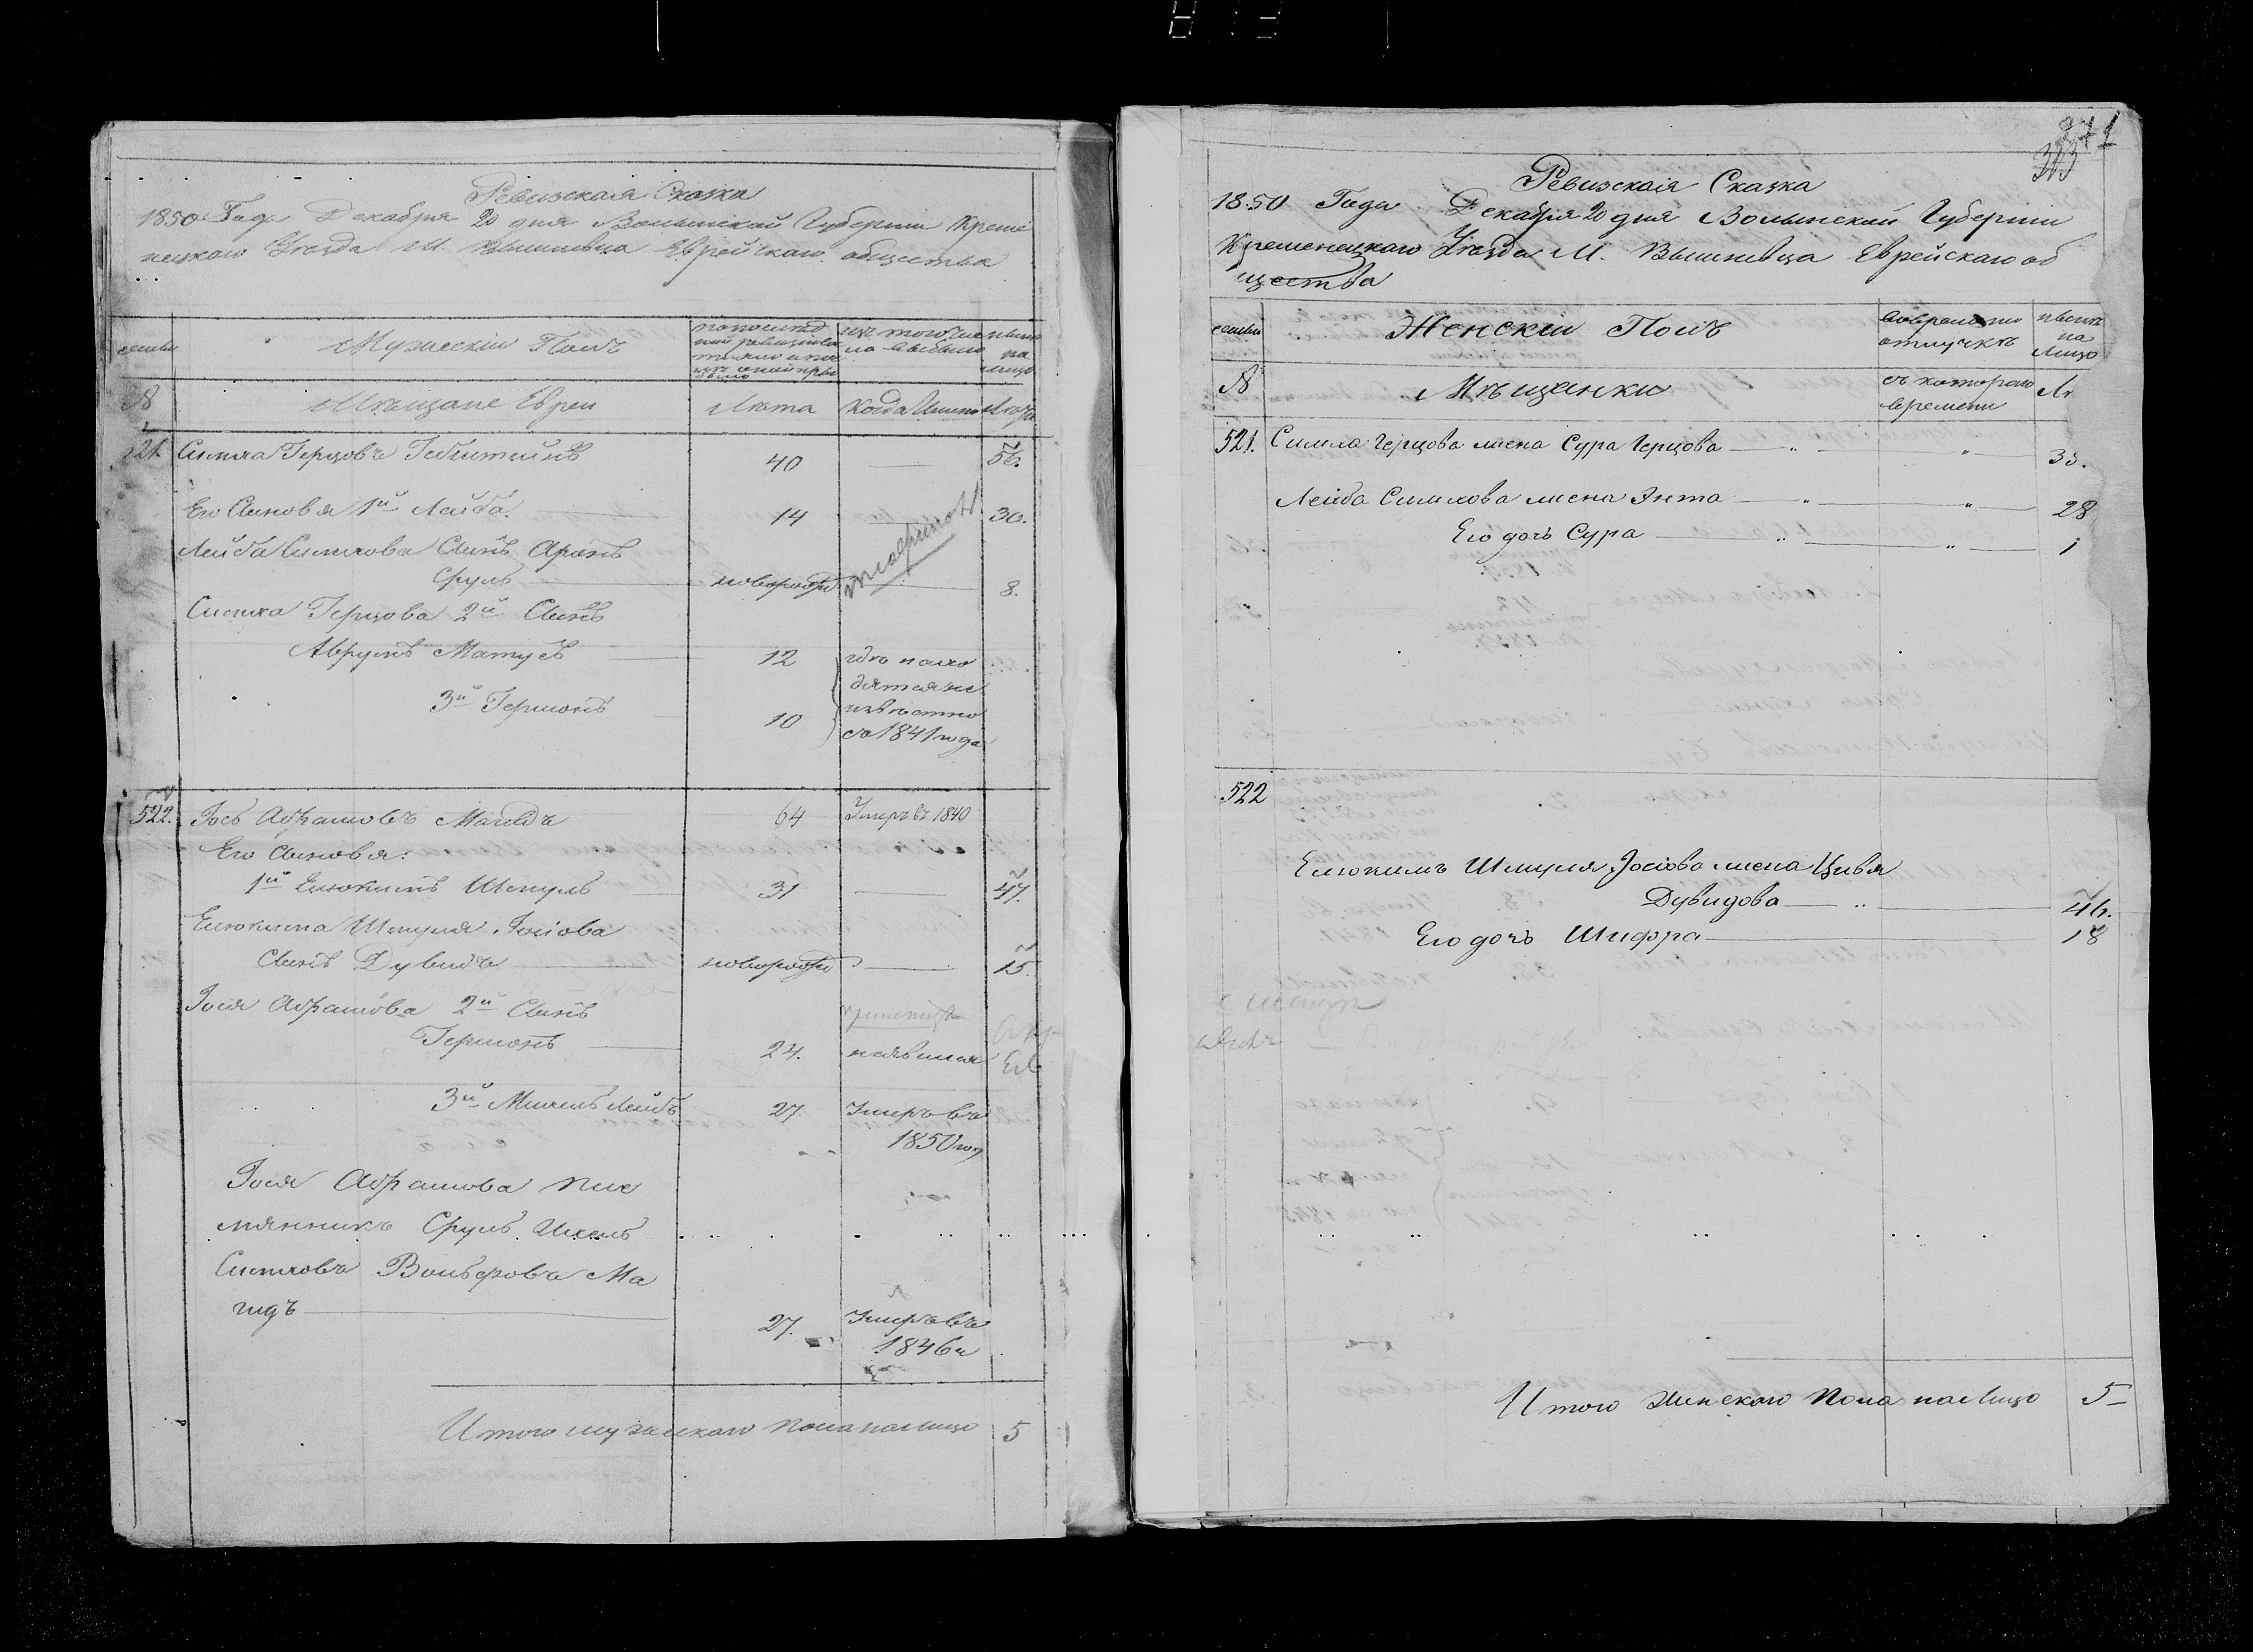 Ревизская Сказка
1850 Года Декабря 20 дня Волынской Губернии Креме
нецкаго Уезда М. Вышневца Еврейскаго общества
семьи
Мужескій Полъ
по последней ревизіи
изъ того числа выбыло
ныне на лицо
№
Мещане Евреи
Лета
Когда Именно
Лета
521. Симха Герцовъ 40 56.
Его Сыновя 1й Лейба. 14 30.
Лейба Симхова Сынъ Аронъ
Сруль новорожд 8.
Симха Герцова 2й Сынъ
Аврумъ Матусъ 12 где нахо
дятся не
3й Гершонъ 10 известно
съ 1841 года
522. Іось Абрамовъ Магидъ 64 Умеръ въ 1840
Его Сыновя:
1й Елюкимъ Шмуль 31 47.
Елюкима Шмуля Іосіова
Сынъ Дувидъ новорожд 15.
Іося Абрамова 2й Сынъ
Гершонъ 24.
3й Михель Лейбъ 27. Умеръ въ
1850 год
Іося Абрамова пле
мянникъ Сруль Ихель
Симховъ Вольфовъ Ма
гидъ 27. Умеръ въ
1846 г
Итого мужескаго пола на лицо 5
271
313
Ревизская Сказка
1850 Года Декабря 20 дня Волынской Губерніи
Кременецкаго Уезда М. Вышневца Еврейскаго об
щества
семьи
Женскій Полъ
Во временной отлучкѣ
ныне на Лицо
№
Мѣщанки
съ котораго времени
Ле
521. Симха Герцова жена Сура Герцова 35.
Лейба Симхова жена Энта 28
Его дочь Сура 1
522
Елюкимъ Шмуля Іосіова жена Цивя
Дувидова 46.
Его дочь Шифра 18
Итого женскаго пола на Лицо 5